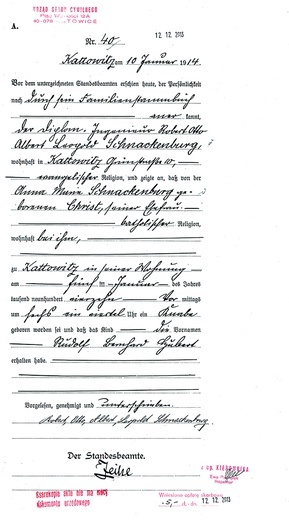 URZĄD STANU CYWILNEGO
40-078 KATOWICE
A.
Nr. 40
12. 12. 2013
Kattowitz am 10 Januar 1914.
Vor dem unterzeichneten Standesbeamten erschien heute, der Persönlichkeit
nach durch sein Familienstammbuch
kannt,
der Diplom. Ingenieur Robert Otto
Albert Leopold Schnackenburg,
wohnhaft in Kattowitz Grünstraße 10,
evangelischer Religion, und zeigte an, daß von der
Anna Maria Schnackenburg ge-
borenen Christ, seiner Ehefrau
katholischer Religion,
wohnhaft bei ihm,
zu Kattowitz in seiner Wohnung
am fünf ten Januar des Jahres
tausend neunhundert vierzehn Vor mittags
um sechs ein viertel Uhr ein Knabe
geboren worden sei und daß das Kind die Vornamen
Rudolf Bernhard Hubert
erhalten habe.
Vorgelesen, genehmigt und unterschrieben.
Robert, Otto, Albert, Leopold Schnackenburg.
Der Standesbeamte.
Kserokopia akt nie ma mocy
dokumentu urzędowego
z up. KIEROWNIKA
-5,-
12. 12. 2013